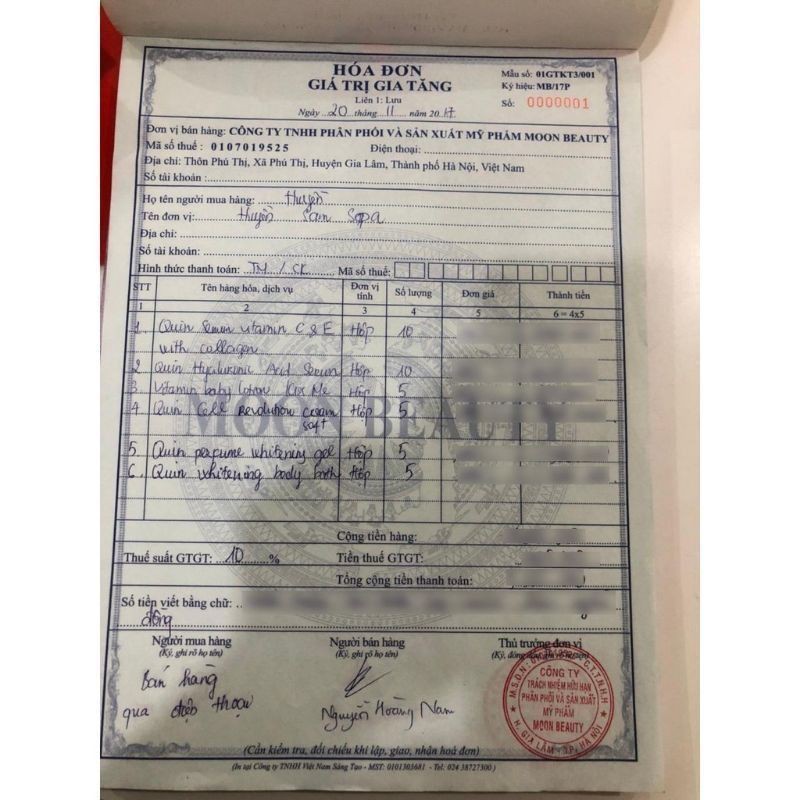 HÓA ĐƠN
GIÁ TRỊ GIA TĂNG
Liên 1: Lưu
Ngày 20 tháng 11 năm 2017
Mẫu số: 01GTKT3/001
Ký hiệu: MB/17P
Số: 0000001
Đơn vị bán hàng: CÔNG TY TNHH PHÂN PHỐI VÀ SẢN XUẤT MỸ PHẨM MOON BEAUTY
Mã số thuế : 0107019525 Điện thoại:
Địa chỉ: Thôn Phú Thị, Xã Phú Thị, Huyện Gia Lâm, Thành phố Hà Nội, Việt Nam
Số tài khoản :
Họ tên người mua hàng: Huyền
Tên đơn vị: Huyền Sam Sapa
Địa chỉ:
Số tài khoản:
Hình thức thanh toán: TM / CK Mã số thuế:
STT Tên hàng hóa, dịch vụ Đơn vị tính Số lượng Đơn giá Thành tiền
1 2 3 4 5 6 = 4x5
1. Quin Serum vitamin C & E Hộp 10
with collagen
2 Quin Hyaluronic Acid Serum Hộp 10
3 Vitamin baby lotion Kiss Me Hộp 5
4 Quin Cell Revolution cream Hộp 5
soft
5. Quin perfume whitening gel Hộp 5
6. Quin whitening body bath Hộp 5
MOON BEAUTY
Cộng tiền hàng:
Thuế suất GTGT: 10 % Tiền thuế GTGT:
Tổng cộng tiền thanh toán:
Số tiền viết bằng chữ:
đồng
Người mua hàng Người bán hàng Thủ trưởng đơn vị
(Ký, ghi rõ họ tên) (Ký, ghi rõ họ tên)
Bán hàng
qua điện thoại
Nguyễn Hoàng Nam
CÔNG TY
TRÁCH NHIỆM HỮU HẠN
PHÂN PHỐI VÀ SẢN XUẤT
MỸ PHẨM
MOON BEAUTY
H. GIA LÂM - T.P. HÀ NỘI
(Cần kiểm tra, đối chiếu khi lập, giao, nhận hoá đơn)
(In tại Công ty TNHH Việt Nam Sáng Tạo - MST: 0101303681 - Tel: 024 38727300 )